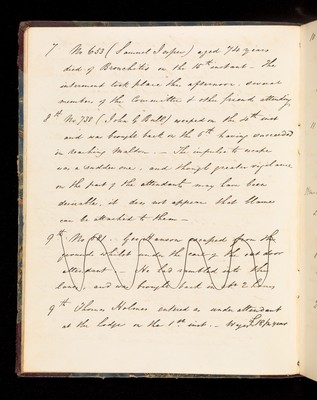 7 No 653 (Samuel Jesper) aged 74 years
died of Bronchitis on the 15th instant - The
interment took place this afternoon, several
members of the Committee & other friends attending
8th No. 738 (John G Ball) escaped on the 4th inst
and was brought back on the 6th having succeeded
in reaching Maldon. - The impulse to escape
was a sudden one, and though greater vigilance
on the part of the attendants may have been
desirable, it does not appear that blame
can be attached to them -
9th No 681. Geo Hanson escaped from the
grounds whilst under the care of the out door
attendant. He had rambled into the
lanes, and was brought back in 2 hours
9th Thomas Holmes entered as under attendant
at the Lodge on the 1st inst. - Wages £18/2 year